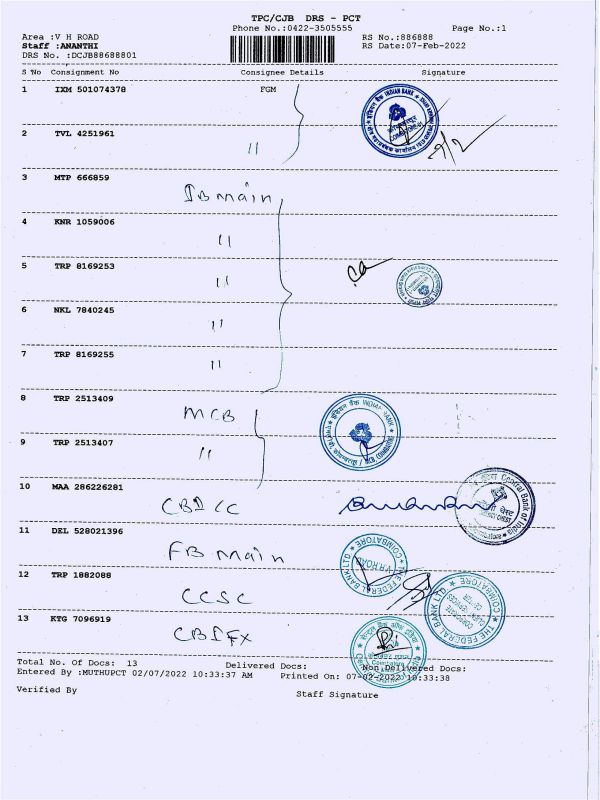 TPC/CJB DRS - PCT
Phone No.:0422-3505555 Page No.:1
Area :V H ROAD RS No.:886888
Staff :ANANTHI RS Date:07-Feb-2022
DRS No. :DCJB88688801
S No Consignment No Consignee Details Signature
1 IXM 501074378 FGM
2 TVL 4251961 "
3 MTP 666859 IB main
4 KNR 1059006 "
5 TRP 8169253 "
6 NKL 7840245 "
7 TRP 8169255 "
8 TRP 2513409 MCB
9 TRP 2513407 "
10 MAA 286226281 CBI CC
11 DEL 528021396 FB main
12 TRP 1882088 CCSC
13 KTG 7096919 CBI FX
INDIAN BANK
इंडियन बैंक INDIAN BANK
MCB, COIMBATORE
Central Bank of India
Coimbatore
THE FEDERAL BANK LTD
COIMBATORE
V H ROAD
THE FEDERAL BANK LTD.
COIMBATORE
Total No. Of Docs: 13 Delivered Docs: Non Delivered Docs:
Entered By :MUTHUPCT 02/07/2022 10:33:37 AM Printed On: 07-02-2022 10:33:38
Verified By Staff Signature